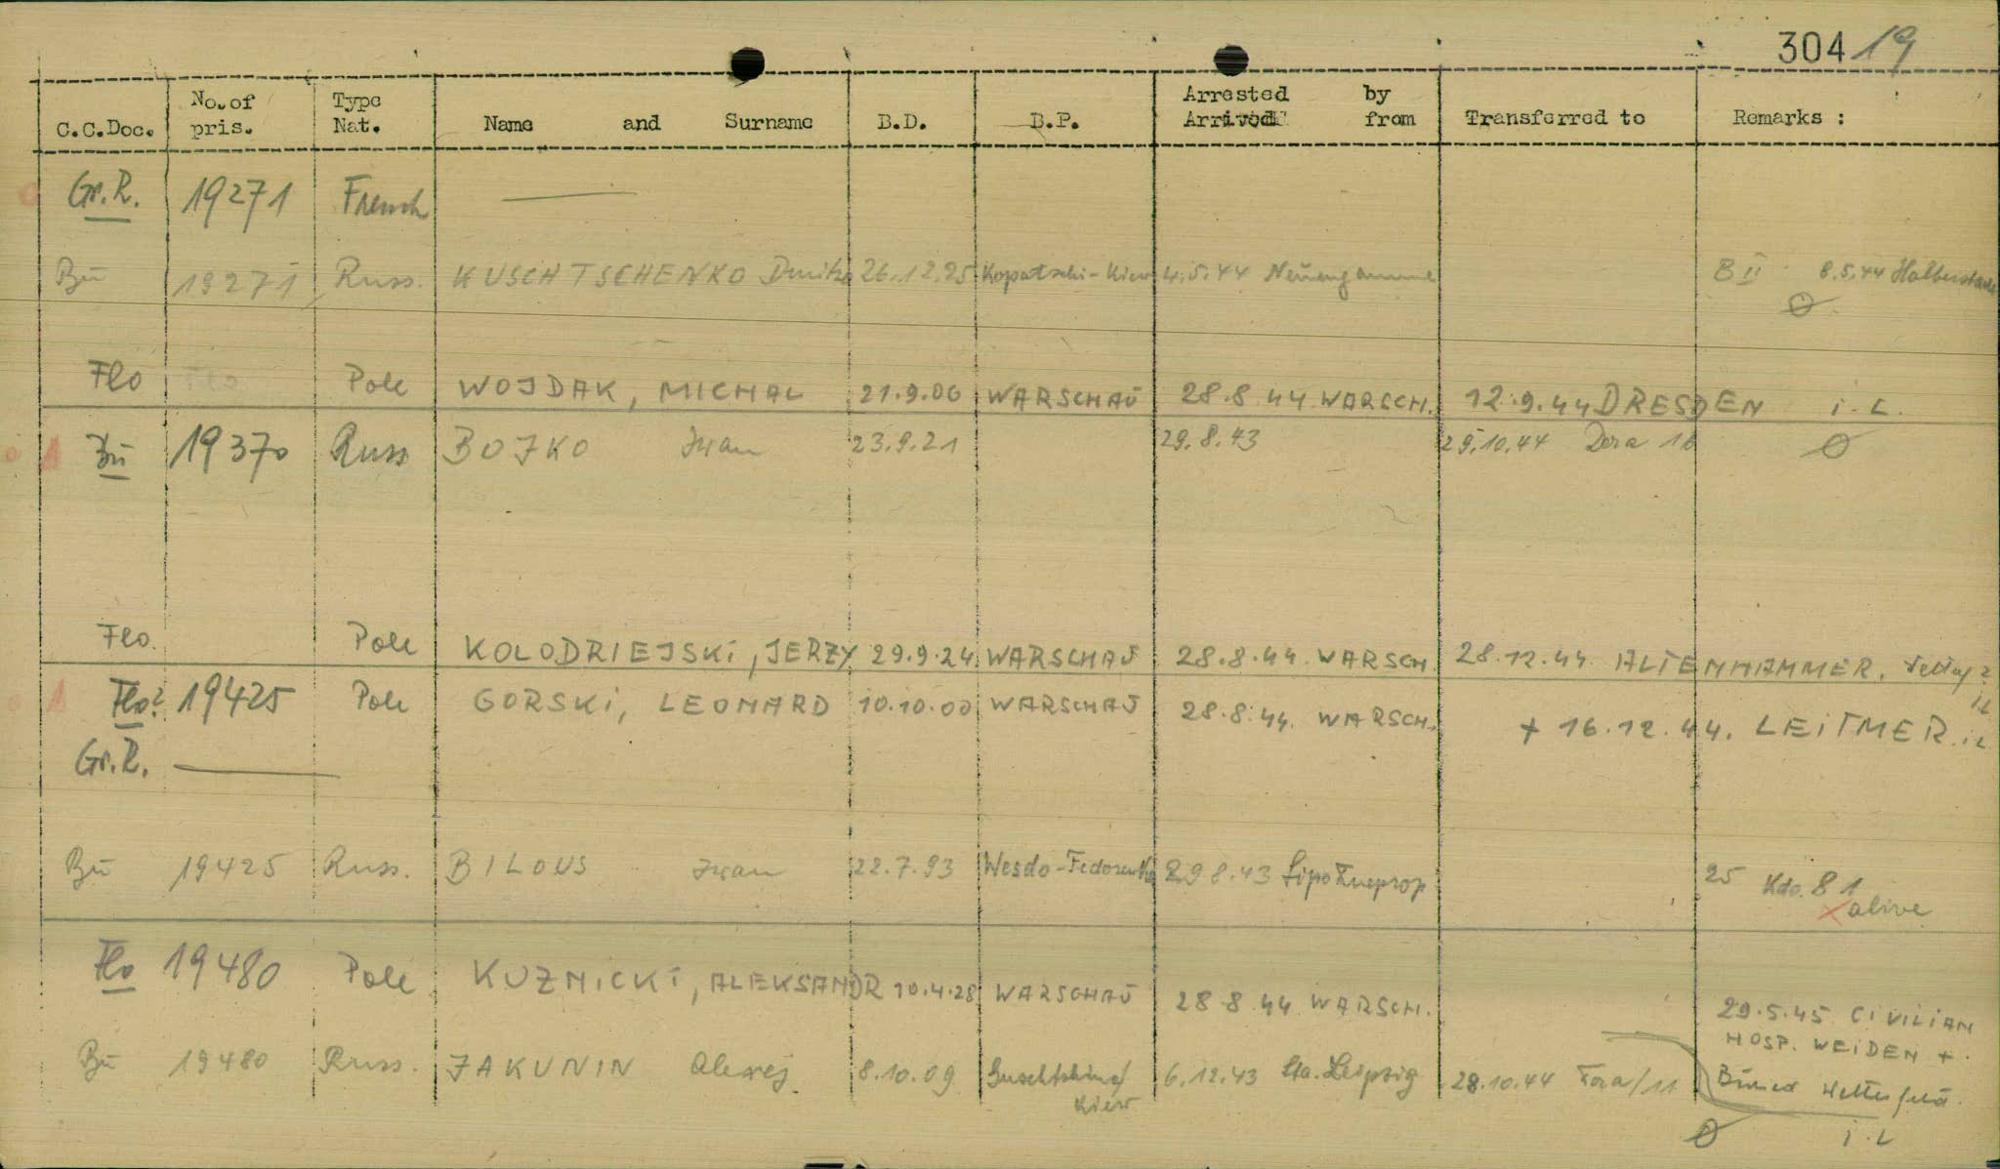 304 19
C.C.Doc. No. of pris. Type Nat. Name and Surname B.D. B.P. Arrested by Arrived from Transferred to Remarks :
Gr.R. 19271 French
Bu 19271 Russ. KUSCHTSCHENKO Dmitro 26.12.25 Kopatschi-Kiew 4.5.44 Neuengamme B II 8.5.44 Halberstadt
Ø
Flo Pole WOJDAK, MICHAL 21.9.06 WARSCHAU 28.8 44 WARSCH. 12.9.44 DRESDEN i.L.
Bu 19370 Russ BOJKO Iwan 23.9.21 29.8.43 29.10.44 Dora Ø
Flo. Pole KOLODRIEJSKI, JERZY 29.9.24 WARSCHAU 28.8.44. WARSCH. 28.12.44. ALTENHAMMER.
Flo? 19425 Pole GORSKI, LEONARD 10.10.00 WARSCHAU 28.8.44. WARSCH. + 16.12.44. LEITMER. i.L
Gr.R.
Bu 19425 Russ. BILOUS Iwan 22.7.93 29 8.43 25 Kdo. 81
alive
Flo 19480 Pole KUZNICKI, ALEKSANDR 10.4.28 WARSCHAU 28 8 44 WARSCH. 29.5.45 CIVILIAN
HOSP. WEIDEN +.
Bu 19480 Russ. JAKUNIN Alexej 8.10.09 Kiew 6.12.43 Leipzig 28.10.44
Ø i.L